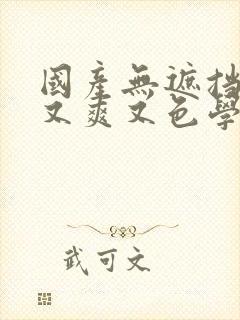 國産無遮挡
又爽又色學
武可文